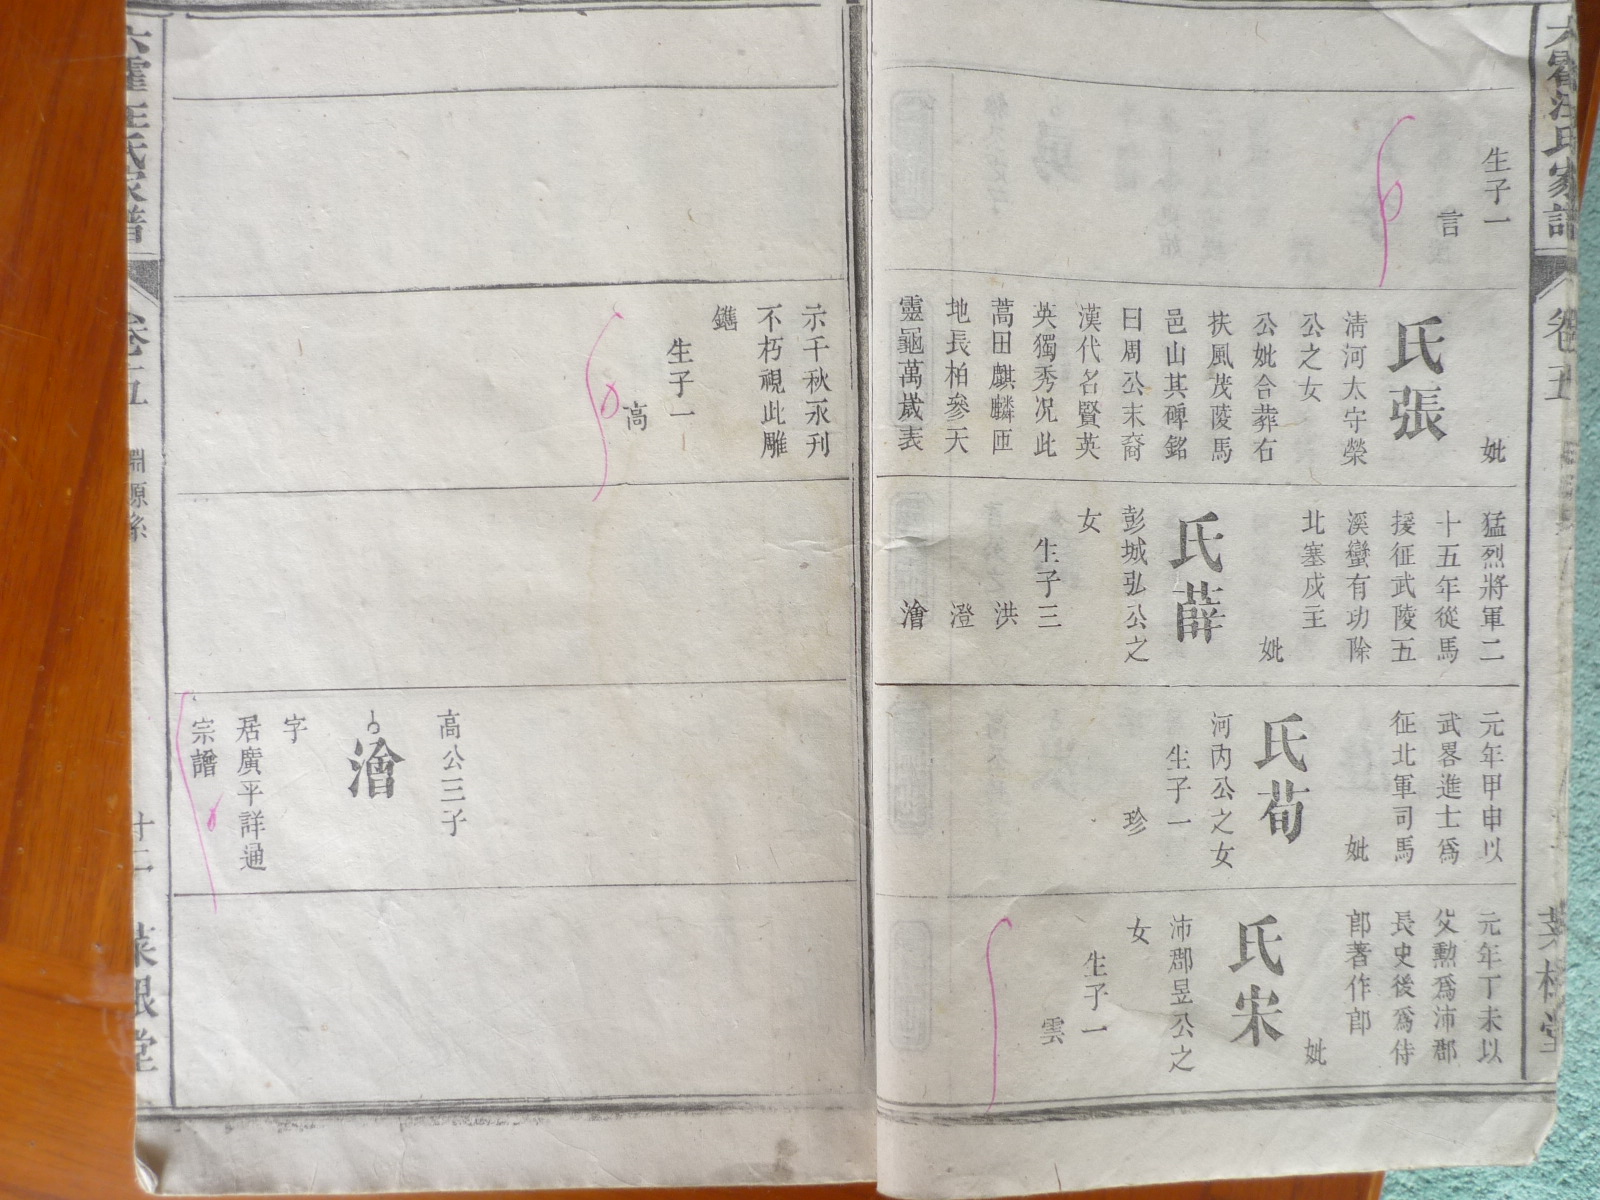 六霍汪氏家譜
卷五
菜根堂
生子一
言
妣
氏張
淸河太守榮
公之女
公妣合葬右
扶風茂陵馬
邑山其碑銘
曰周公末裔
漢代名賢英
英獨秀况此
蒿田麒麟匝
地長柏參天
靈龜萬歲表
示千秋永刊
不朽視此雕
鐫
生子一
高
猛烈將軍二
十五年從馬
援征武陵五
溪蠻有功除
北塞戍主
妣
氏薛
彭城弘公之
女
生子三
洪
澄
澮
元年甲申以
武畧進士爲
征北軍司馬
妣
氏荀
河内公之女
生子一
珍
高公三子
澮
字
居廣平詳通
宗譜
元年丁未以
父勲爲沛郡
長史後爲侍
郎著作郎
妣
氏宋
沛郡昱公之
女
生子一
雲
六霍汪氏家譜
卷五
淵源系
十二
菜根堂